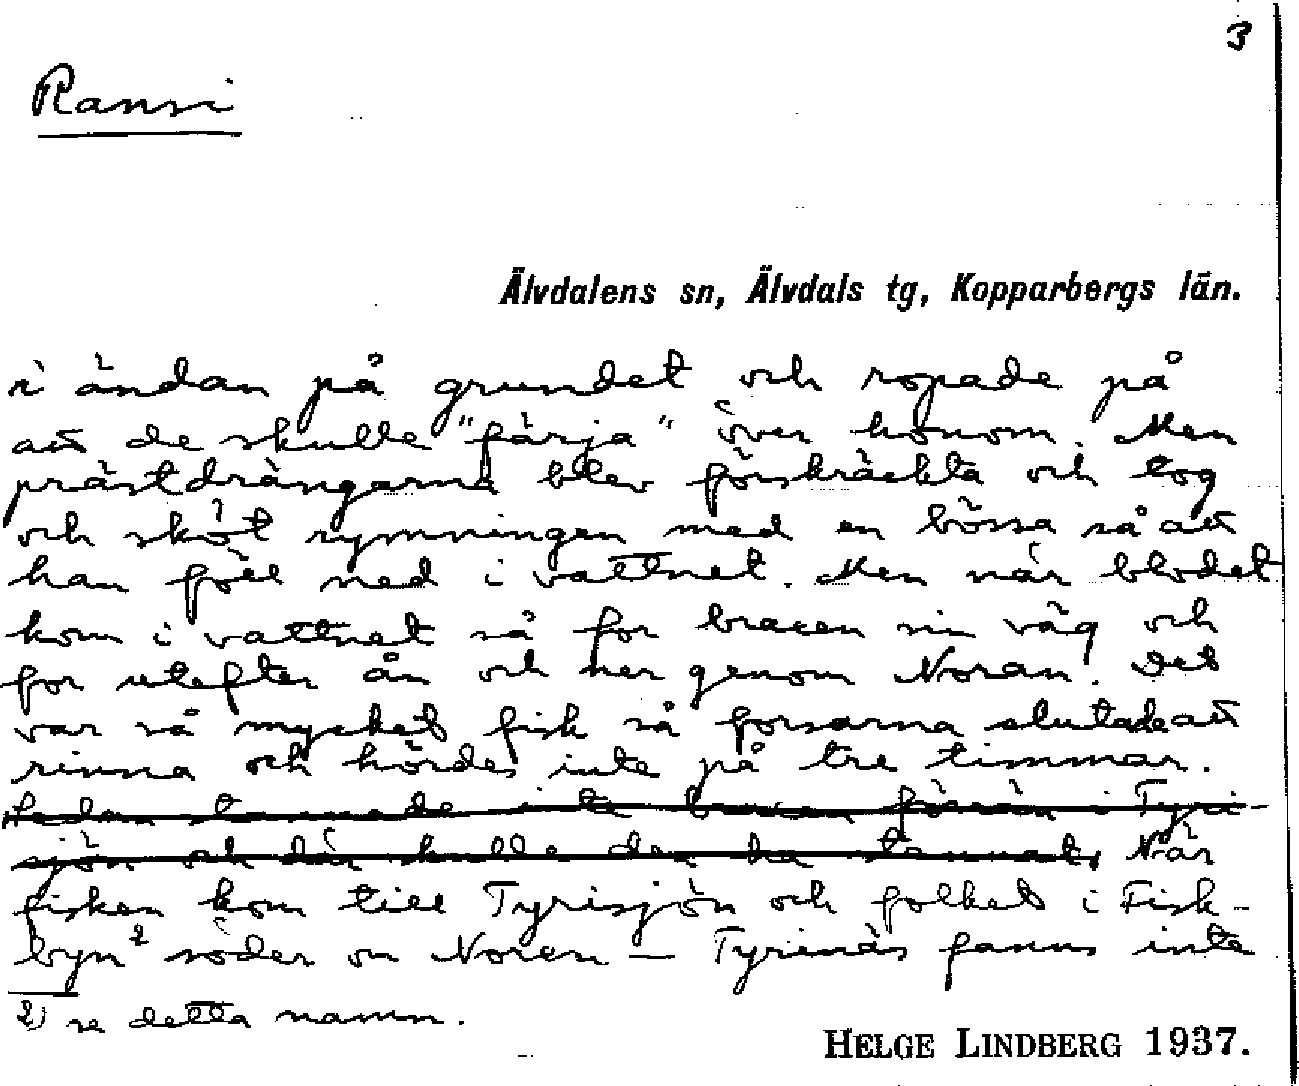 3
Ransi
Älvdalens sn, Älvdals tg, Kopparbergs län.
i ändan på grundet och ropade på
att de skulle "färja" över honom. Men
prästdrängarna blev förskräckta och tog
och sköt rymningen med en bössa så att
han föll ned i vattnet. Men när blodet
kom i vattnet så for braxen sin väg och
for utefter ån och ner genom Noran. Det
var så mycket fisk så forsarna slutade att
rinna och hördes inte på tre timmar.
Sedan stannade inte braxen förrän i Tyri-
sjön och där skulle den ha stannat. När
fisken kom till Tyrisjön och folket i Fisk-
byn² söder om Noren – Tyrinäs fanns inte
2) se detta namn.
HELGE LINDBERG 1937.